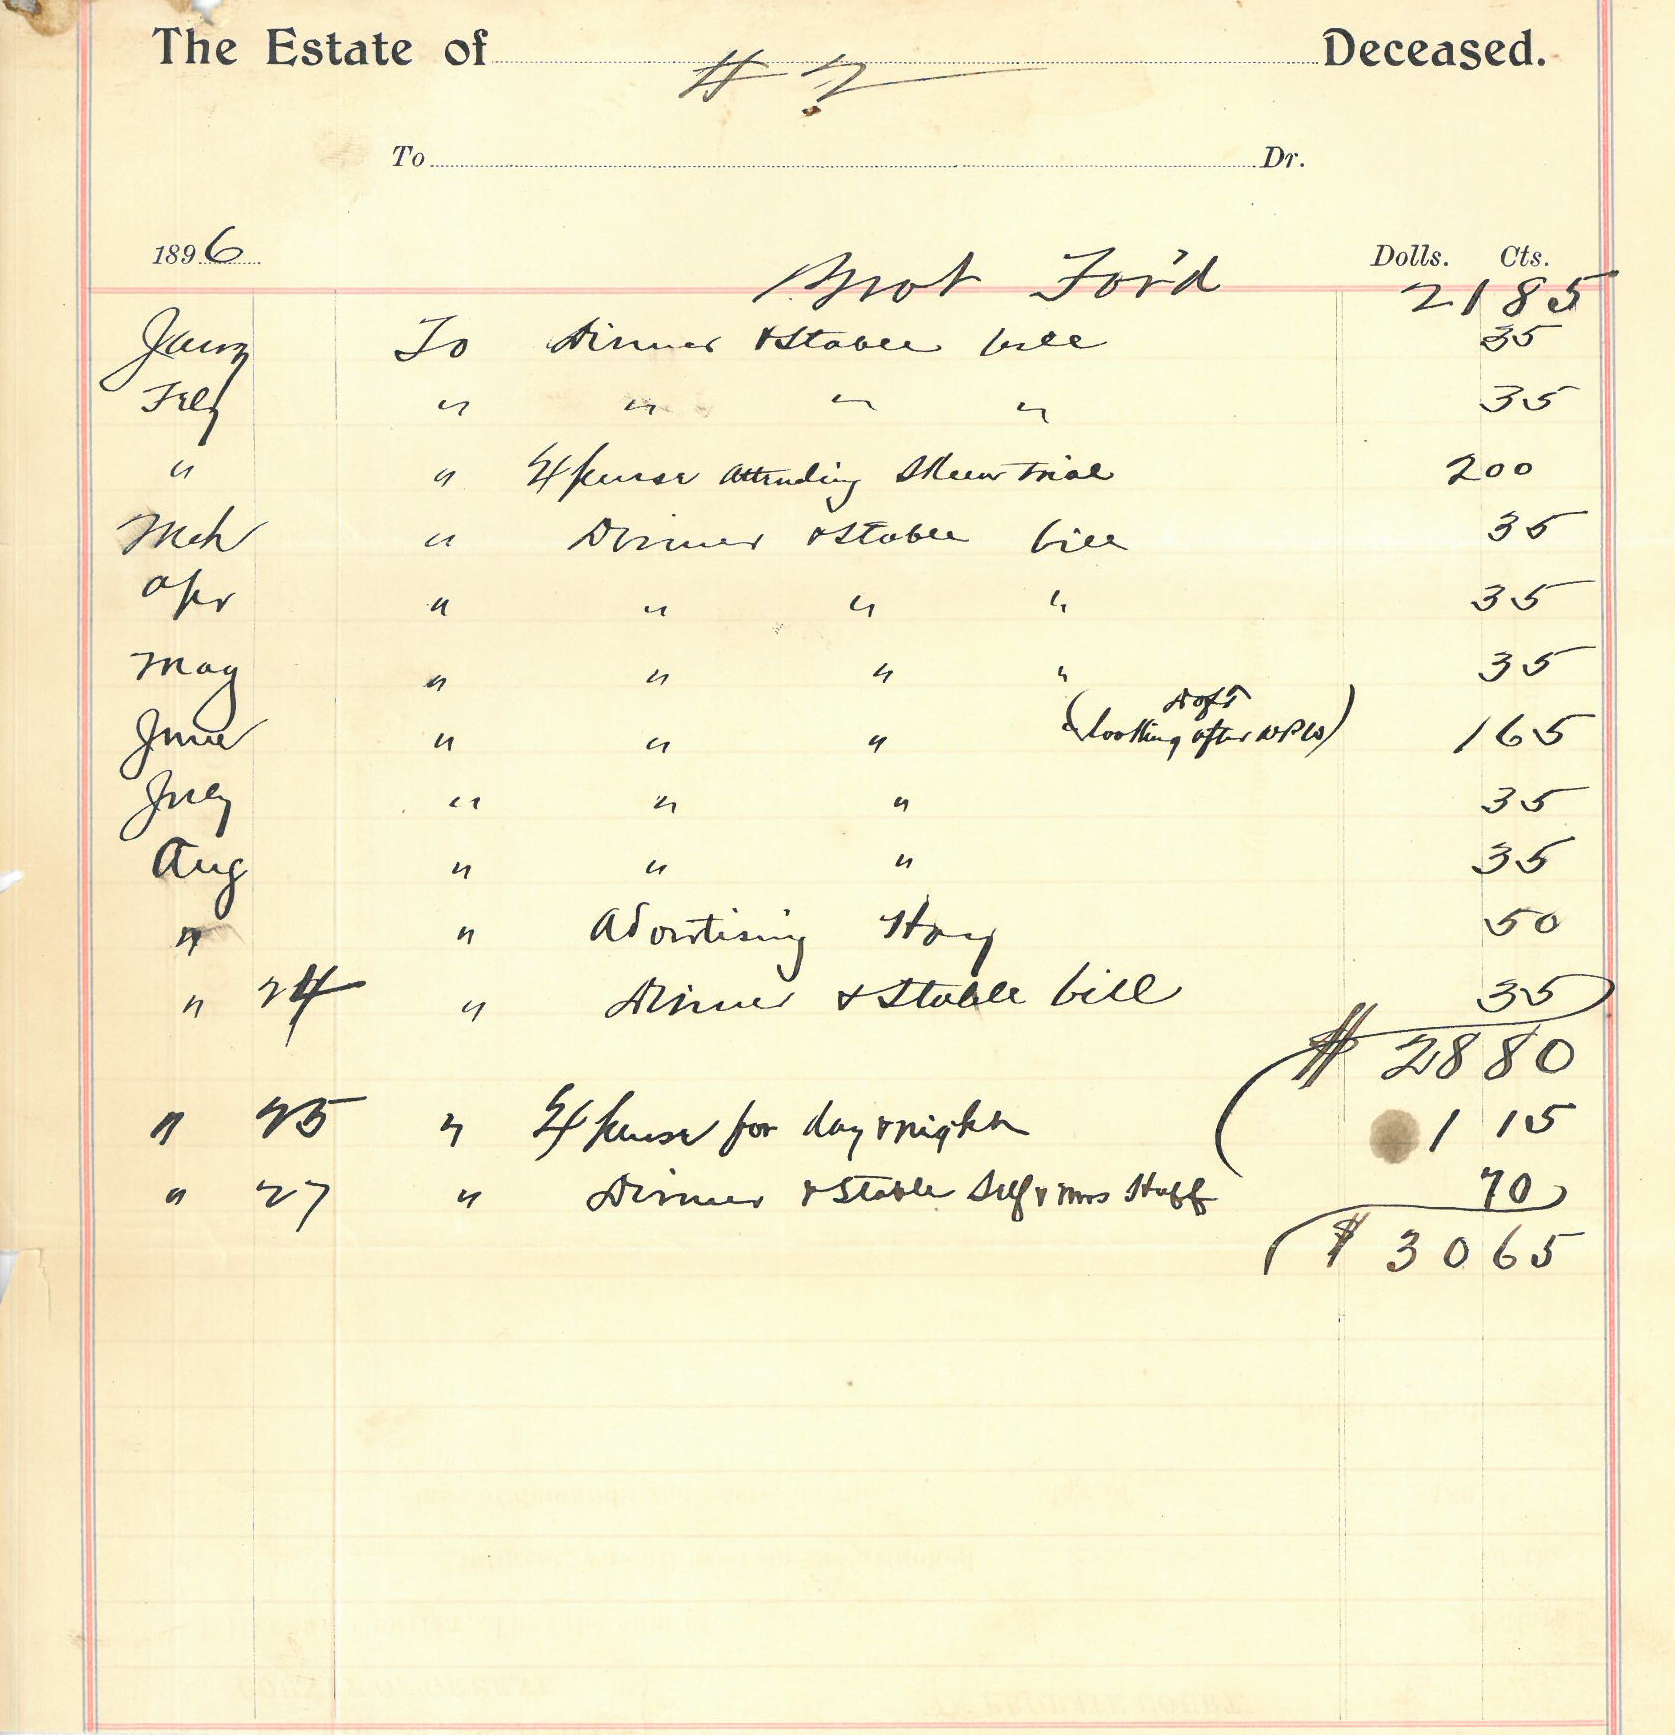 The Estate of # 2 Deceased.
To Dr.
1896 Dolls. Cts.
Brot For'd 21 85
Jany To Dinner & Stable bill 35
Feby " " " " 35
" " Expense attending trial 2 00
Mch " Dinner & Stable bill 35
Apr " " " " 35
May " " " " 35
June " " " (looking after ) 1 65
July " " " 35
Aug " " " 35
" " Advertising Hay 50
" 24 " Dinner & Stable bill 35
$ 28 80
" 25 " Expense for day & night 1 15
" 27 " Dinner & Stable Self & Mrs Huff 70
$ 30 65